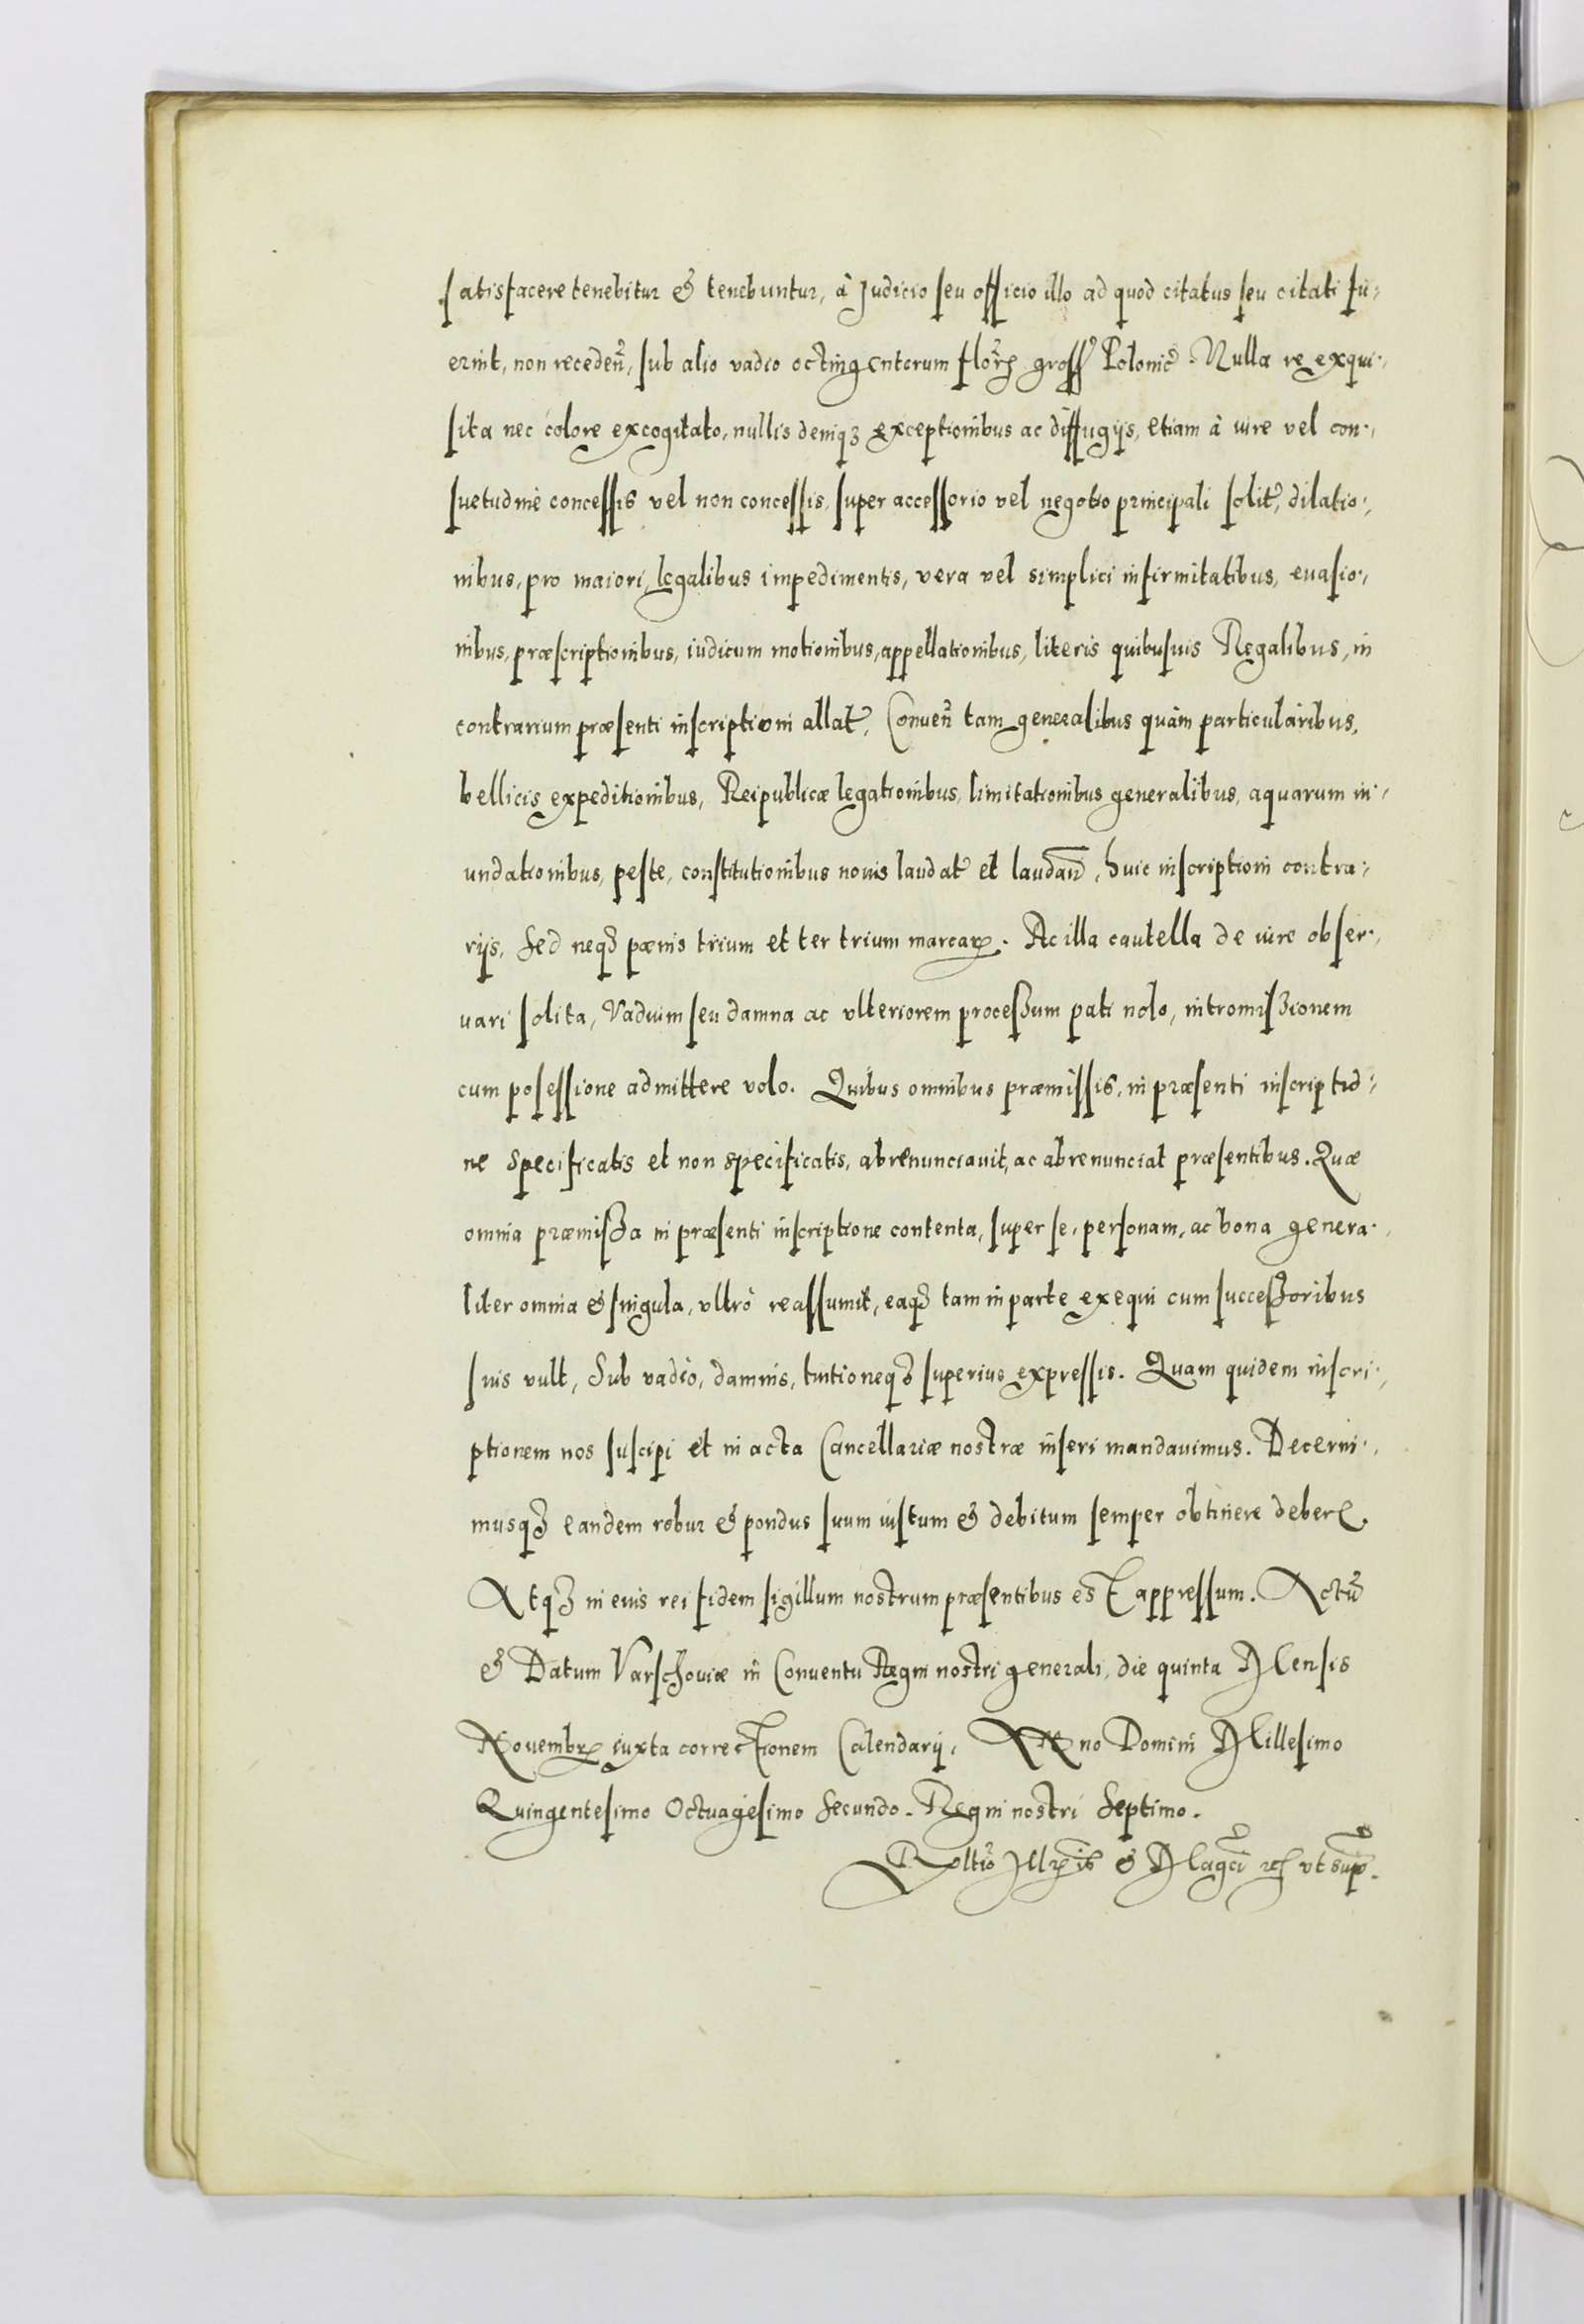 satisfacere tenebitur & tenebuntur, à Judicio seu officio illo ad quod citatus seu citati fu-
erint, non receden̄, sub alio vadio octingentorum flor. gross. Polonic. Nulla re exqui-
sita nec colore excogitato, nullis deniq3 exceptionibus ac diffugijs, etiam à iure vel con-
suetudine concessis vel non concessis, super accessorio vel negotio principali solit, dilatio-
nibus, pro maiori, legalibus impedimentis, vera vel simplici infirmitatibus, euasio-
nibus, præscriptionibus, iudicum motionibus, appellationibus, literis quibusuis Regalibus, in
contrarium præsenti inscriptioni allat, Conuen̄ tam generalibus quàm particularibus,
bellicis expeditionibus, Reipublicæ legationibus, limitationibus generalibus, aquarum in-
undationibus, peste, constitutionibus nouis laudat et laudan̄, huic inscriptioni contra-
rijs, Sed neq3 pœnis trium et ter trium marcarꝝ. Ac illa cautella de iure obser-
uari solita, Vadium seu damna ac vlteriorem processum pati nolo, intromissionem
cum posessione admittere volo. Quibus omnibus præmissis, in præsenti inscriptio-
ne specificatis et non specificatis, abrenunciauit, ac abrenunciat præsentibus. Quæ
omnia præmissa in præsenti inscriptione contenta, super se, personam, ac bona genera-
liter omnia & singula, vltrò reassumit, eaq3 tam in parte exequi cum successoribus
suis vult, Sub vadio, damnis, tuitioneq3 superius expressis. Quam quidem inscri-
ptionem nos suscipi et in acta Cancellariæ nostræ inseri mandauimus. Decerni-
musq3 eandem robur & pondus suum iustum & debitum semper obtinere debere.
Atq3 in eius rei fidem sigillum nostrum præsentibus est appressum. Actū
& Datum Varschouiæ in Conuentu Regni nostri generali, die quinta Mensis
Nouembrꝭ iuxta correctionem Calendarij, Anno Domini Millesimo
Quingentesimo Octuagesimo Secundo. Regni nostri Septimo.
& vt sup.